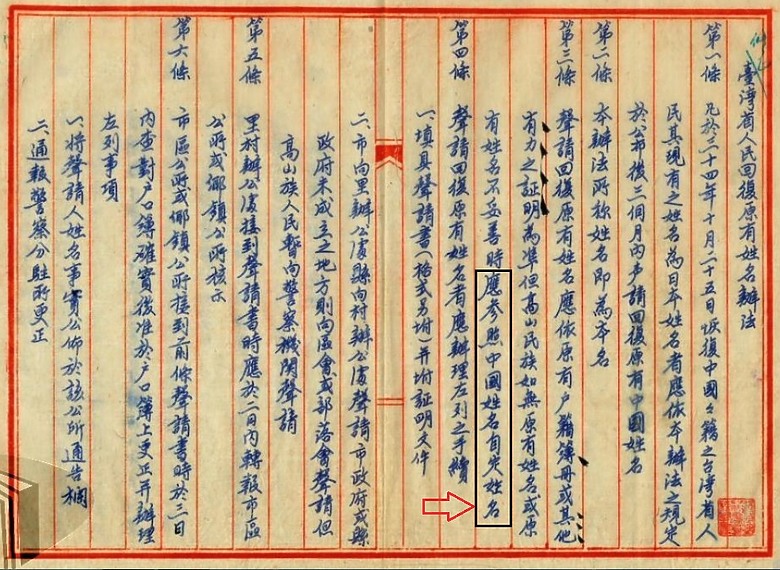 臺灣省人民回復原有姓名辦法
第一條 凡於三十四年十月二十五日恢復中國々籍之台灣省人
民其現有之姓名為日本姓名者應依本辦法之規定
於公布後三個月內声請回復原有中國姓名
第二條 本辦法所称姓名即為本名
第三條 聲請回復原有姓名應依原有户籍簿冊或其他
有力之証明為準但高山民族如無原有姓名或原
有姓名不妥善時應参照中國姓名自定姓名
第四條 聲請回復原有姓名者應辦理左列之手續
一、填具聲請書(格式另附)并附証明文件
二、市向里辦公處縣向村辦公處聲請市政府或縣
政府未成立之地方則向區會或部落會聲請但
高山族人民暫向警察機関聲請
第五條 里村辦公處接到聲請書時應於二日內轉報市區
公所或鄉鎮公所核示
第六條 市區公所或鄉鎮公所接到前條聲請書時於三日
內查對户口簿確實後准於户口簿上更正并辦理
左列事項
一、將聲請人姓名事實公佈於該公所通告欄
二、通報警察分駐所更正